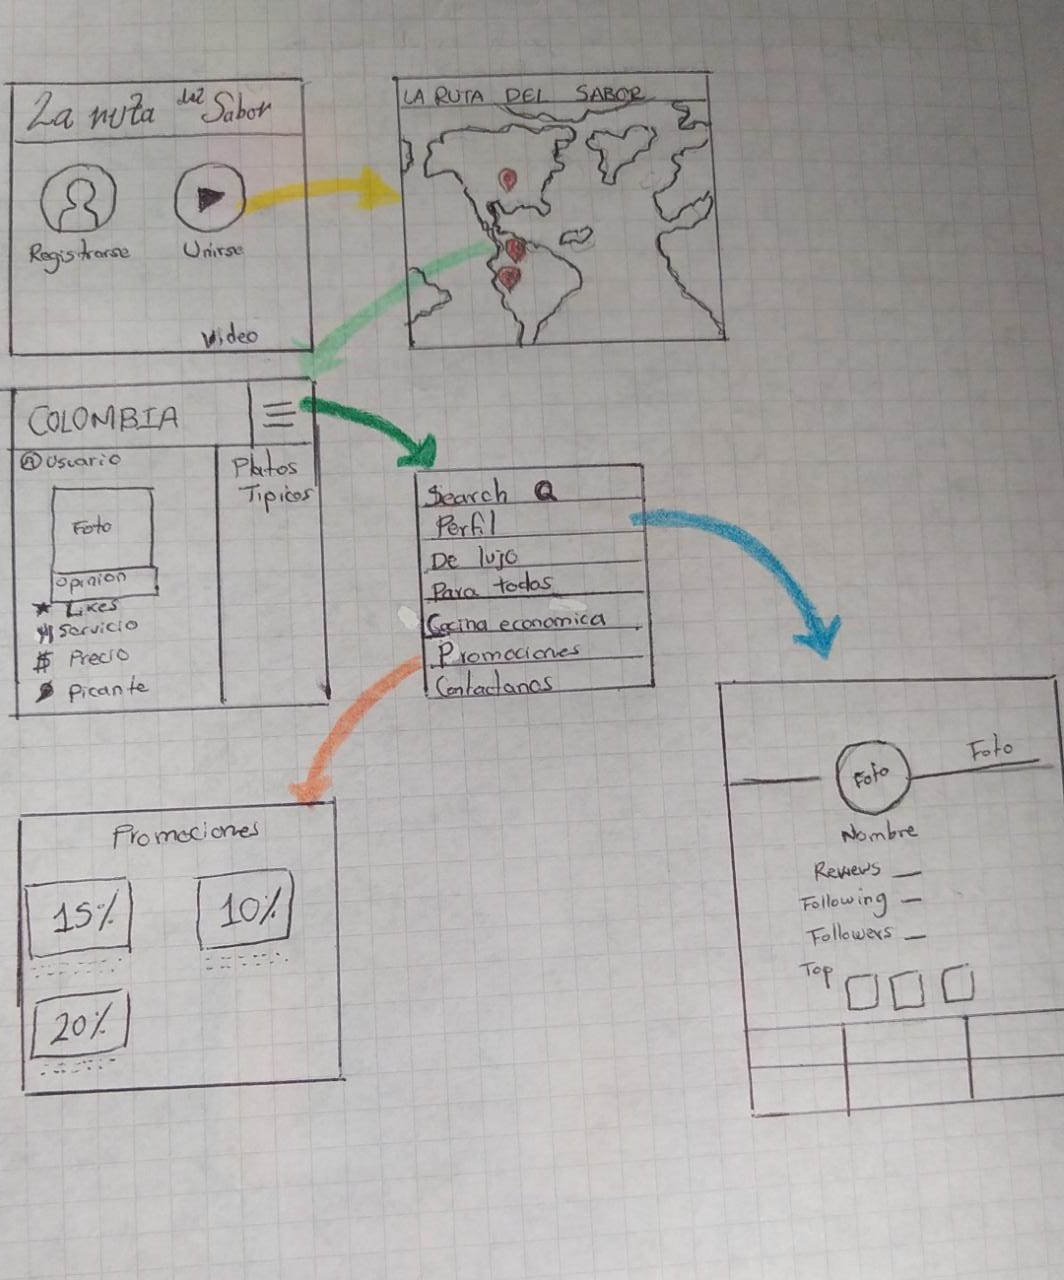 La ruta del Sabor
Registrarse
Unirse
Video
LA RUTA DEL SABOR
COLOMBIA
Usuario
Foto
Opinion
Likes
Servicio
$ Precio
Picante
Platos
Tipicos
Search
Perfil
De lujo
Para todos
Cocina economica
Promociones
Contactanos
Promociones
15%
10%
20%
Foto
Foto
Nombre
Reviews
Following
Followers
Top